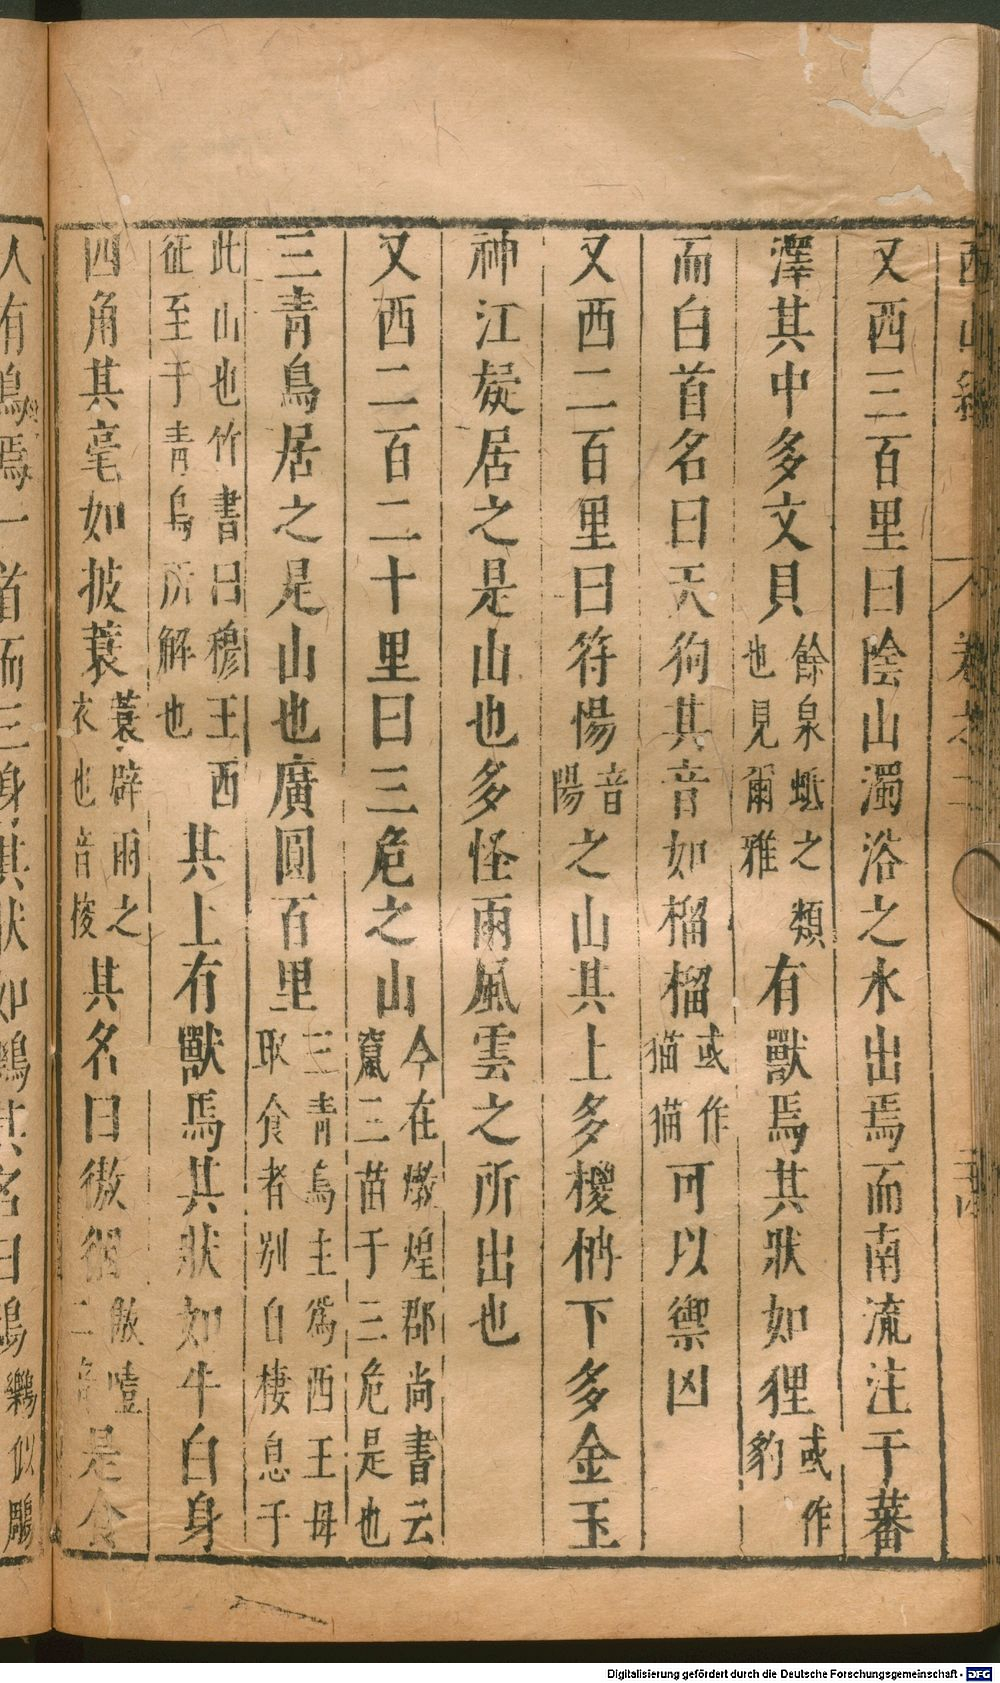 西山經 卷之二
又西三百里曰陰山濁浴之水出焉而南流注于蕃
澤其中多文貝餘泉蚳之類也見爾雅有獸焉其狀如狸或作豹
而白首名曰天狗其音如榴榴或作猫猫可以禦凶
又西二百里曰符惕音陽之山其上多椶枬下多金玉
神江疑居之是山也多怪雨風雲之所出也
又西二百二十里曰三危之山今在燉煌郡尚書云竄三苗于三危是也
三青鳥居之是山也廣圓百里三青鳥主爲西王母取食者别自棲息于
此山也竹書曰穆王西征至于青鳥所解也其上有獸焉其狀如牛白身
四角其毫如披蓑蓑辟雨之衣也音梭其名曰㺊㺊傲噎二音是食
人有鳥焉一首而三身其狀如鶚其名曰鴟鸈似鵰
Digitalisierung gefördert durch die Deutsche Forschungsgemeinschaft - DFG